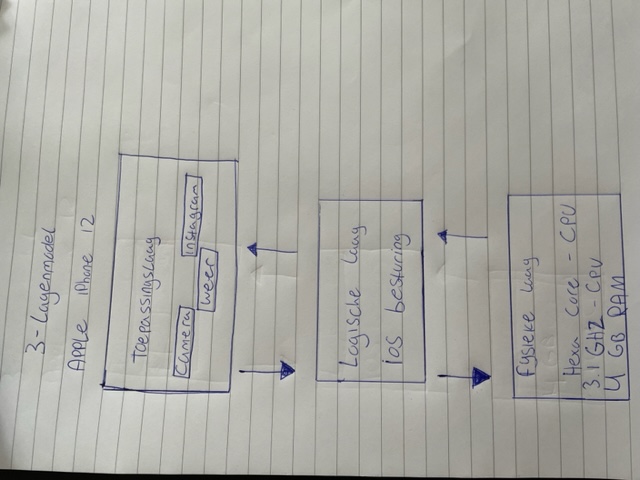 3-Lagenmodel
Apple iPhone 12
Toepassingslaag
Camera
Instagram
Weer
Logische laag
ios besturing
Fysieke laag
Hexa Core - CPU
3.1 GHZ - CPU
4 GB RAM